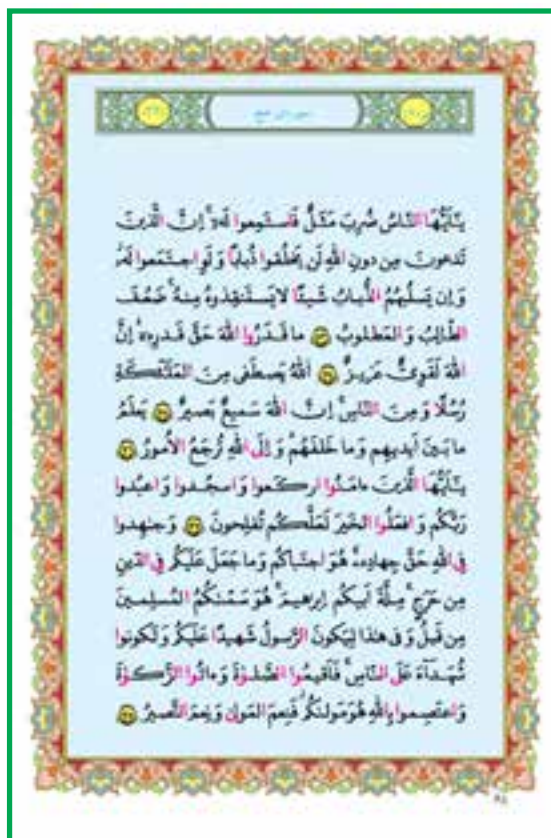 يَـٰٓأَيُّهَا النَّاسُ ضُرِبَ مَثَلٌ فَاستَمِعوا لَهُ إِنَّ الَّذينَ
تَدعونَ مِن دونِ اللهِ لَن يَخلُقوا ذُبابًا وَ لَوِ اجتَمَعوا لَهُ
وَ إِن يَسلُبهُمُ الذُّبابُ شَيئًا لا يَستَنقِذوهُ مِنهُ ضَعُفَ
الطّالِبُ وَ المَطلوبُ ما قَدَرُوا اللهَ حَقَّ قَدرِهِ إِنَّ
اللهَ لَقَوِىٌّ عَزيزٌ اَللهُ يَصطَفى مِنَ المَلَـٰٓئِكَةِ
رُسُلًا وَ مِنَ النّاسِ إِنَّ اللهَ سَميعٌ بَصيرٌ يَعلَمُ
ما بَينَ أَيديهِم وَ ما خَلفَهُم وَ إِلَى اللهِ تُرجَعُ الأُمورُ
يَـٰٓأَيُّهَا الَّذينَ ءامَنُوا اركَعوا وَ اسجُدوا وَ اعبُدوا
رَبَّكُم وَ افعَلُوا الخَيرَ لَعَلَّكُم تُفلِحونَ وَ جـٰهِدوا
فِى اللهِ حَقَّ جِهادِهِ هُوَ اجتَباكُم وَ ما جَعَلَ عَلَيكُم فِى الدّينِ
مِن حَرَجٍ مِلَّةَ أَبيكُم إِبراهيمَ هُوَ سَمّىٰكُمُ المُسلِمينَ
مِن قَبلُ وَ فى هـٰذا لِيَكونَ الرَّسولُ شَهيدًا عَلَيكُم وَ تَكونوا
شُهَداءَ عَلَى النّاسِ فَأَقيمُوا الصَّلوٰةَ وَ ءاتُوا الزَّكوٰةَ
وَ اعتَصِموا بِاللهِ هُوَ مَولىٰكُم فَنِعمَ المَولىٰ وَ نِعمَ النَّصيرُ